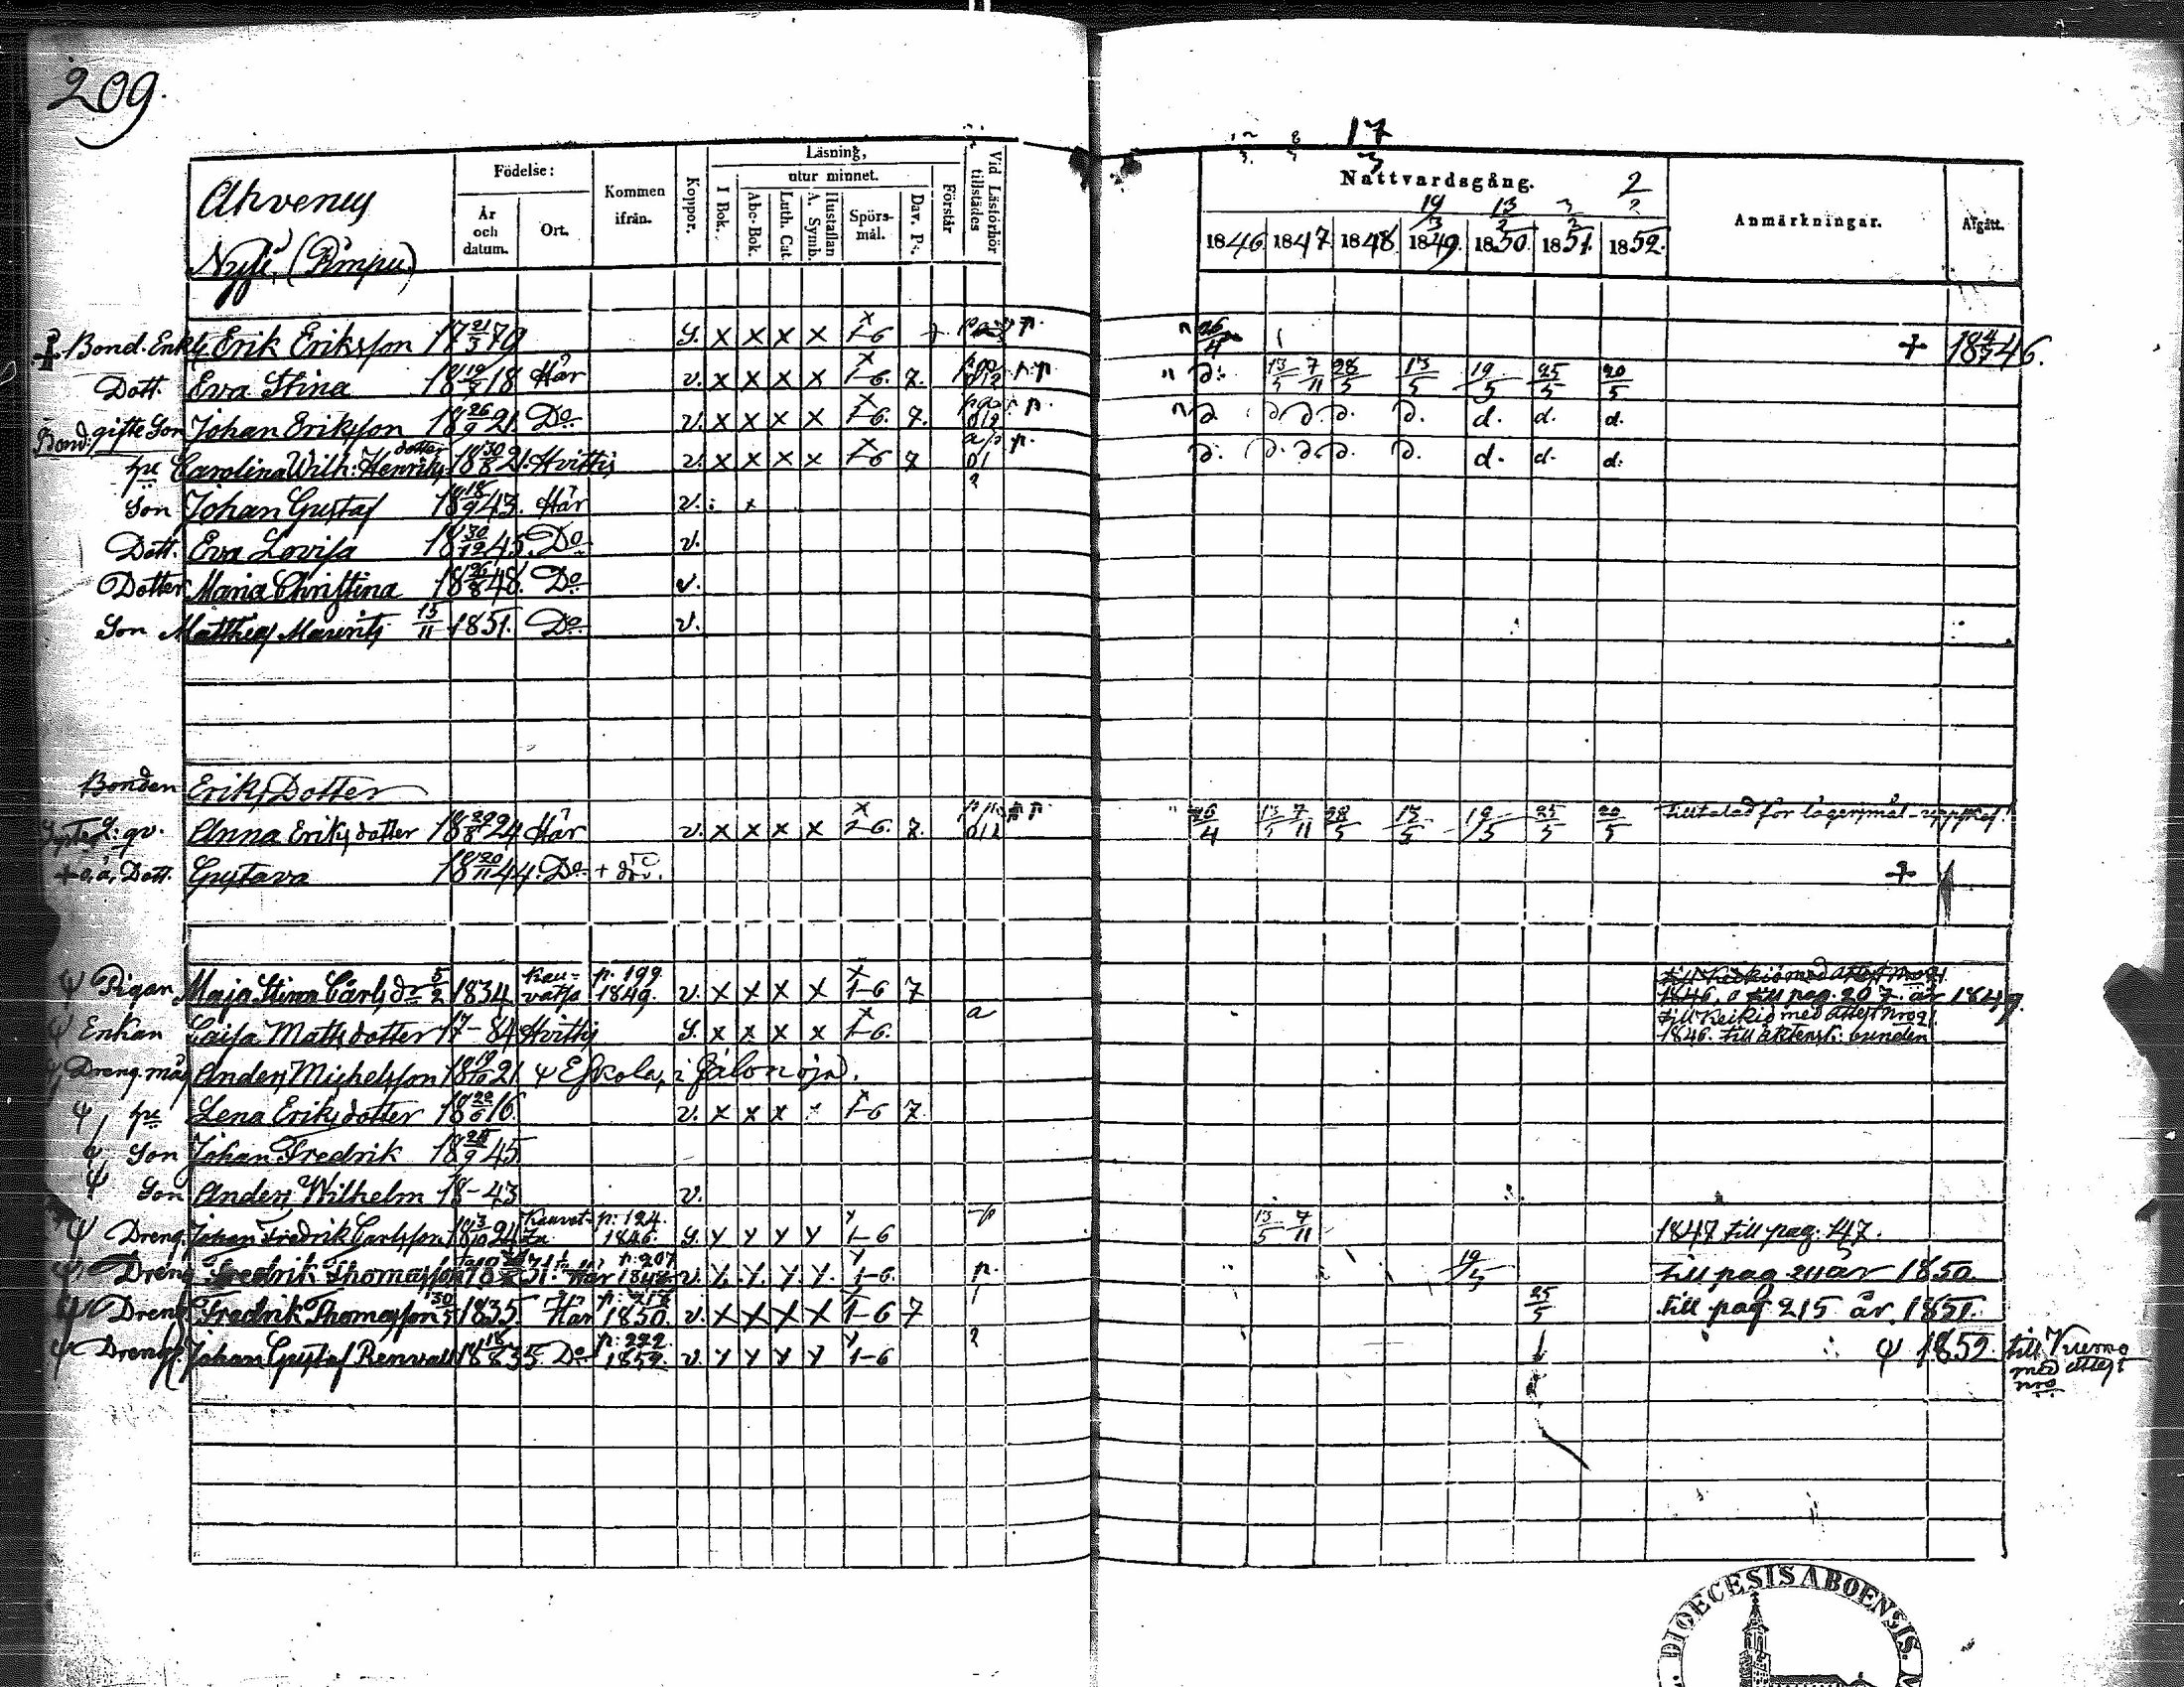 209.
17
Ahvenus
Nygård (Pimpu)
Födelse:
År och datum.
Ort.
Kommen ifrån.
Koppor.
Läsning,
I Bok.
utur minnet.
Abc-Bok.
Luth. Cat.
A. Symb.
Hustaflan
Spörsmål.
Dav. Ps.
Förstår
Vid Läsförhör tillstädes
Nattvardsgång.
19/3 13/2 2/2
1846. 1847. 1848. 1849. 1850. 1851. 1852.
Anmärkningar.
Afgått.
Bond. Enkl. Erik Eriksson 17 21/3 79 S. x x x x 1-6 26/4 + 18 4/7 46.
Dott. Eva Stina 18 19/9 18 Här v. x x x x 1-6. 7. d: 13/5 7/11 28/5 13/5 19/5 25/5 20/5
Bond: gifte Son Johan Eriksson 18 26/9 21. Do v. x x x x 1-6. 7. d. d d. d. d. d. d. d.
hu Carolina Wilh: Henriksdotter 18 30/8 21. Hvittis v. x x x x 1-6 7 d. d. d. d. d. d. d. d.
Son Johan Gustaf 18 18/9 43. Här v. x
Dott. Eva Lovisa 18 30/12 45. Do v.
Dotter Maria Christina 18 26/8 48. Do v.
Son Matthias Maurits 15/11 1851. Do v.
Bonden Eriks Dotter
Anna Eriksdotter 18 29/8 24 Här v. x x x x 1-6. 7. 26/4 13/5 7/11 28/5 13/5 19/5 25/5 20/5 tilltalad för lägersmål
o.ä. Dott. Gustava 18 20/11 44. Do +
Pigan Maja Stina Carlsdr 5/2 1834. Kauvatsa p. 199 1849. v. x x x x 1-6 7 till Keikiö med attest no 91 1846. till pag. 207. år 1849.
Enkan Caisa Mattsdotter 17-84 Hvittis S. x x x x 1-6. a till Keikiö med attest no 91 1846. till äktensk: bunden
Dreng. måg Anders Michelsson 18 19/10 21 Eskola, i
hu Lena Eriksdotter 18 20/6 16. v. x x x 1-6 7.
Son Johan Fredrik 18 28/9 45
Son Anders Wilhelm 18-43 v.
Dreng. Johan Fredrik Carlsson 18 3/10 24 Kauvatsa p: 124. 1846. S. y y y y 1-6 13/5 7/11 1847 till pag. 147.
Dreng Fredrik Thomasson Här p: 207 1848 v. y. y. y. y. 1-6. p. 19/5 till pag 211 år 1850.
Dreng. Fredrik Thomasson 30/5 1835. Här 1850. v. x x x x 1-6 7 25/5 till pag 215 år 1851.
Dreng. Johan Gustaf Renvall 18 18/8 35 Do p: 222. 1852. v. y y y y 1-6 1852. till Kumo med attest nro
DIOECESIS ABOENSIS.